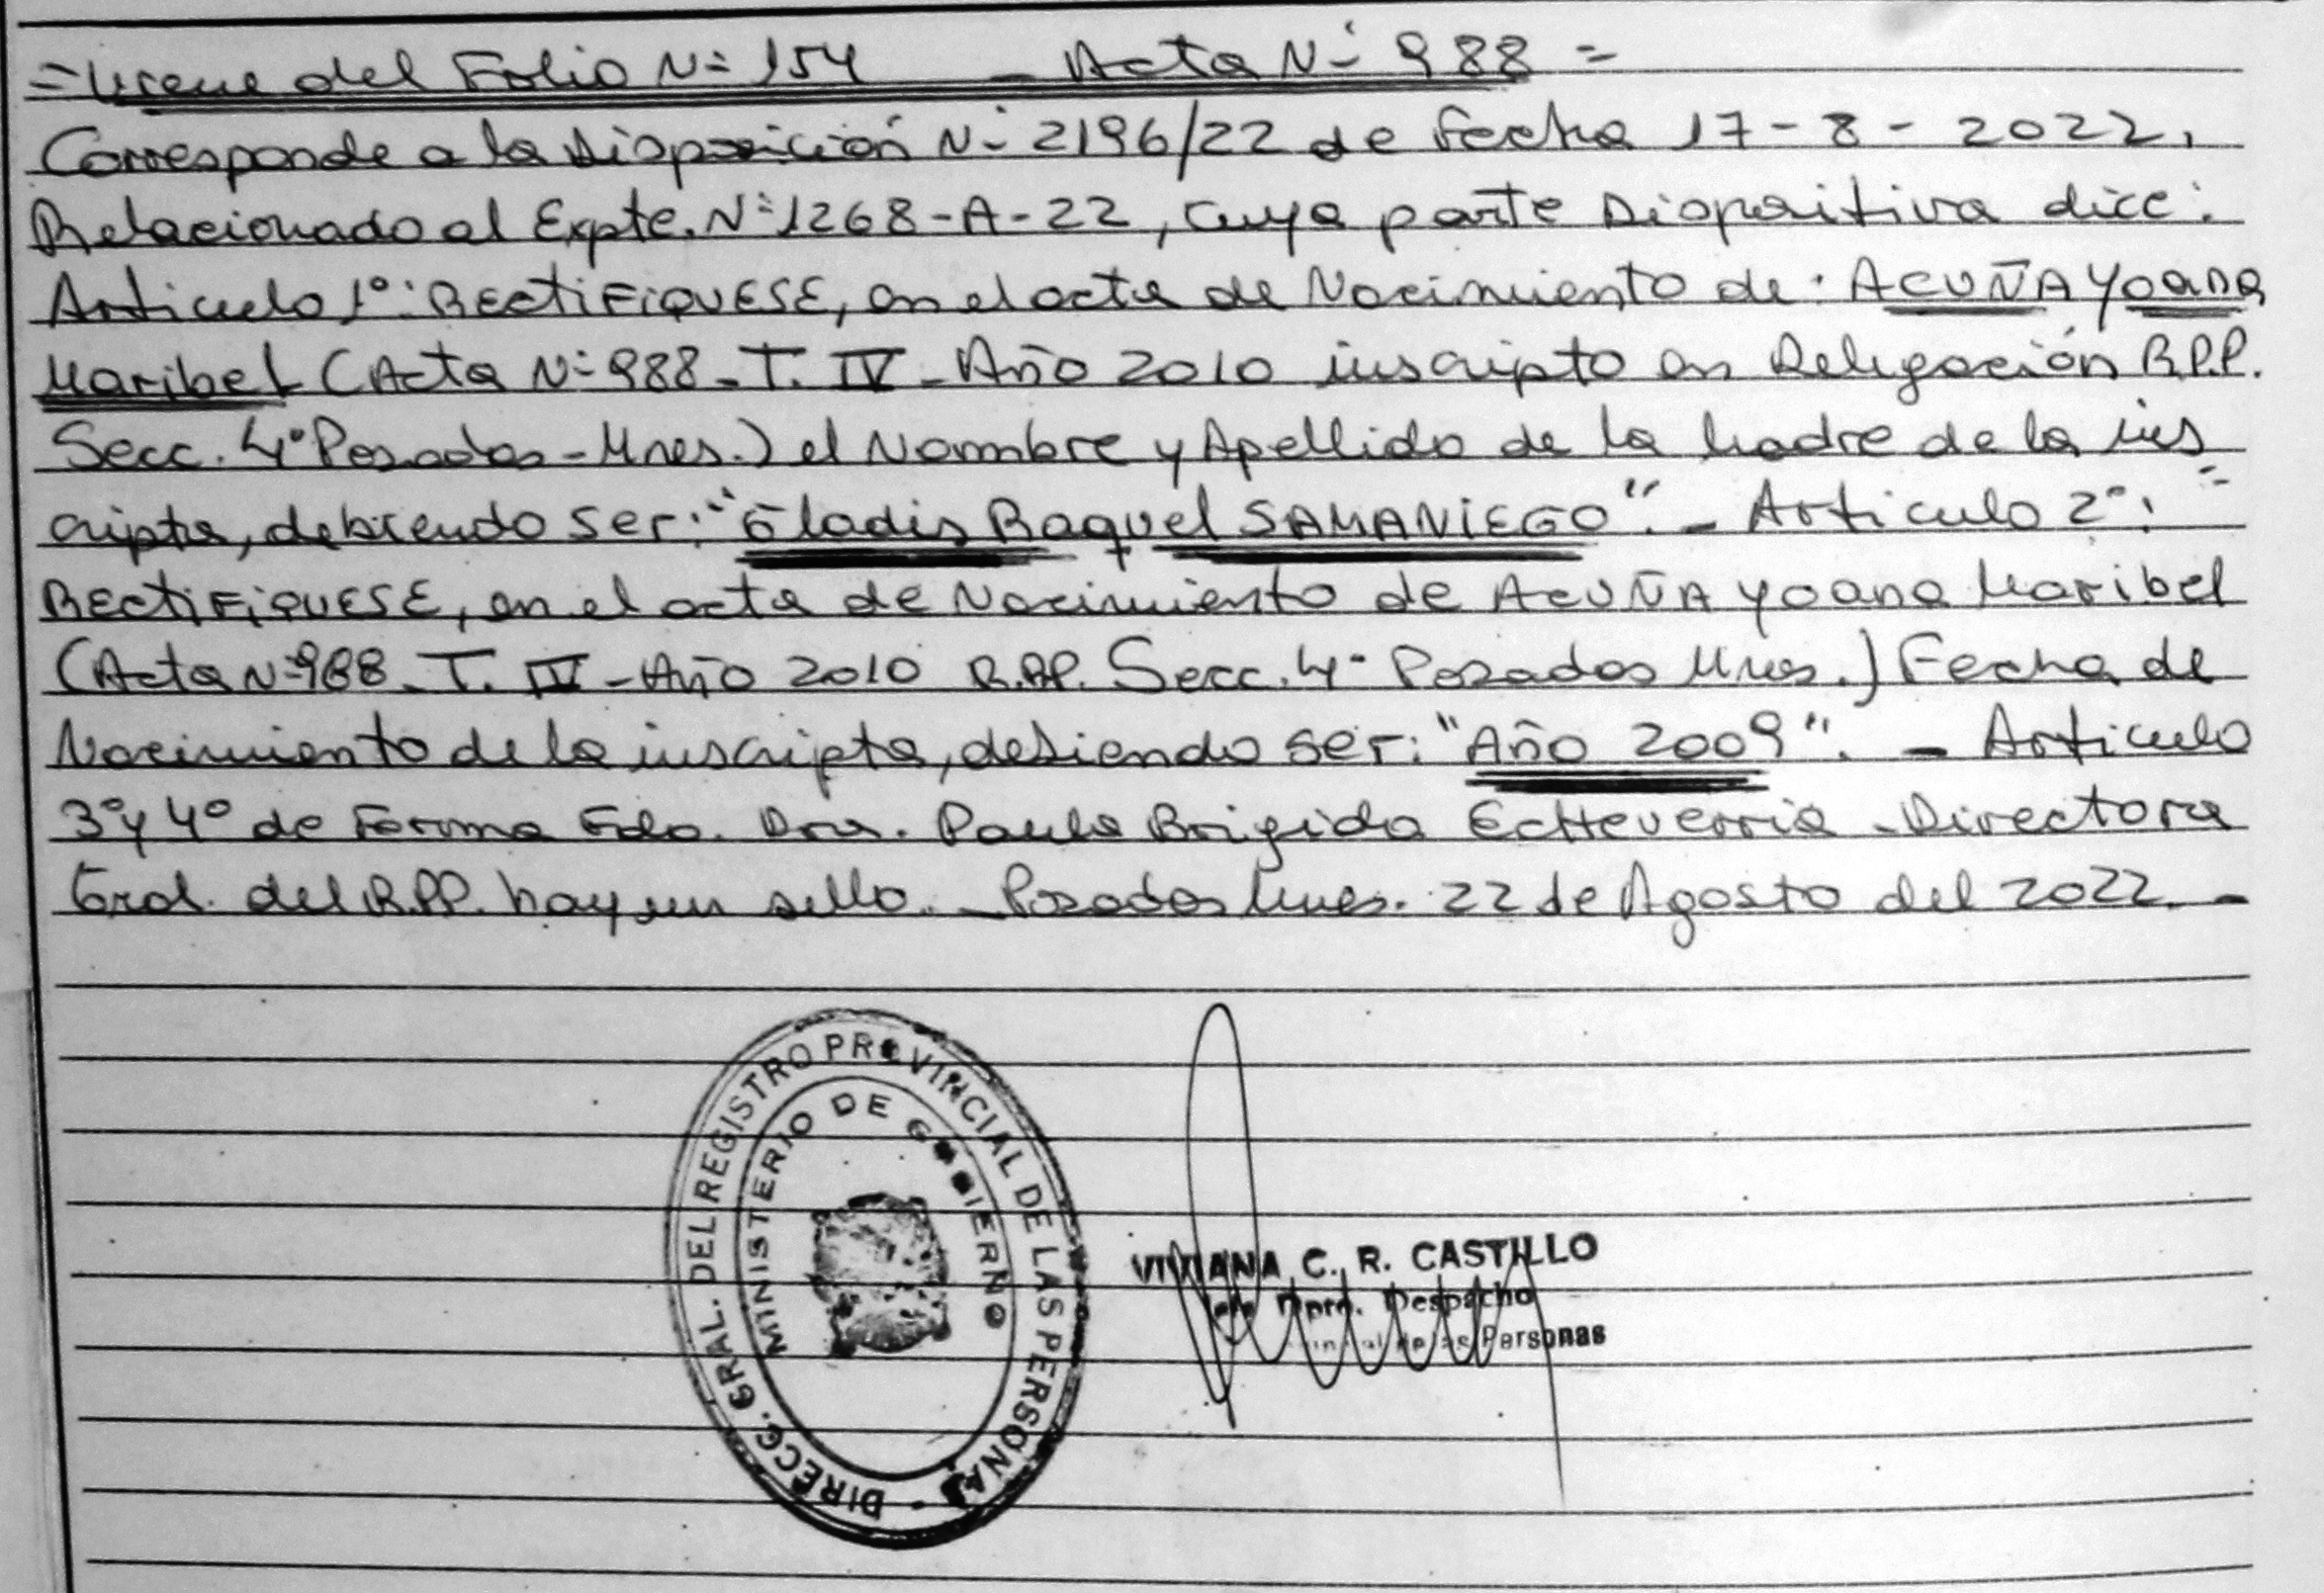 =Viene del Folio N= 154 - Acta N= 988 =
Corresponde a la Disposición N= 2196/22 de Fecha 17-8-2022.
Relacionado al Expte. N=1268-A-22, cuya parte Dispositiva dice:
Articulo 1°: RECTIFIQUESE, en el acta de Nacimiento de: ACUÑA Yoana
Maribel (Acta N=988 - T. IV - Año 2010 inscripto en Delegación R.P.P.
Secc. 4° Posadas - Mnes.) el Nombre y Apellido de la Madre de la ins
cripta, debiendo ser: "Gladis Raquel SAMANIEGO". - Articulo 2°:
RECTIFIQUESE, en el acta de Nacimiento de ACUÑA Yoana Maribel
(Acta N=988 - T. IV - Año 2010 R.P.P. Secc. 4° Posadas Mnes.) Fecha de
Nacimiento de la inscripta, debiendo ser: "Año 2009". - Articulo
3° y 4° de Forma Fdo. Dra. Paula Brigida Echeverria - Directora
Gral. del R.P.P. hay un sello. - Posadas Mnes. 22 de Agosto del 2022. -
DIRECC. GRAL. DEL REGISTRO PROVINCIAL DE LAS PERSONAS -
MINISTERIO DE GOBIERNO
VIVIANA C. R. CASTILLO
Jefe Dpto. Despacho
de las Personas